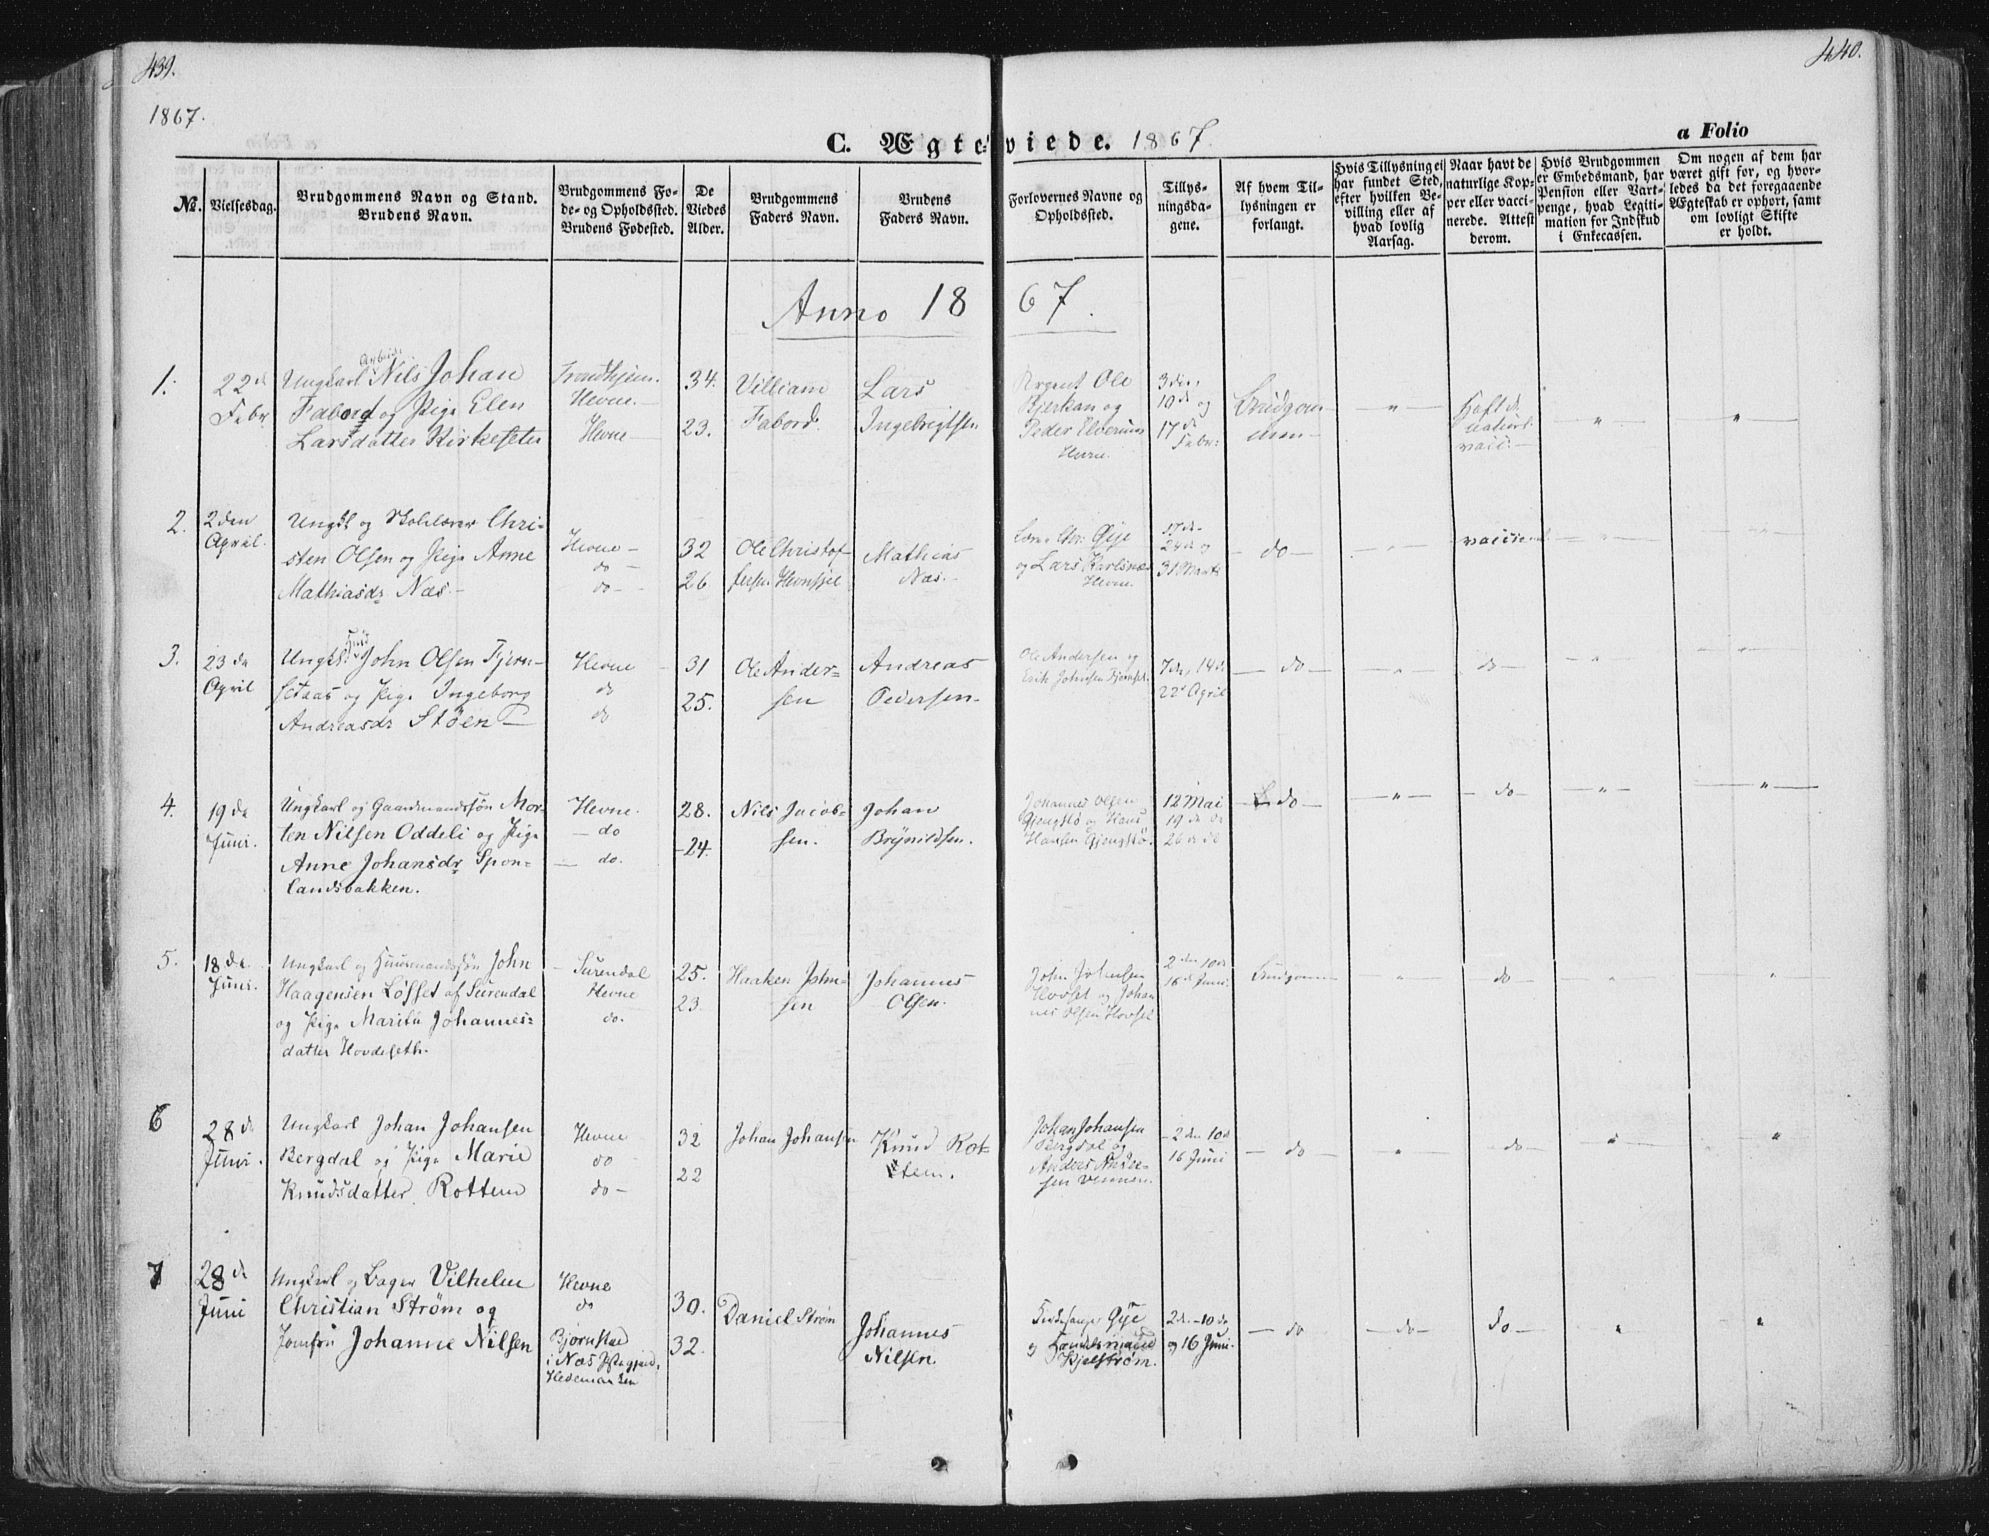 439.
440.
1867.
C. Ægteviede. 1867.
a Folio
No.
Vielsesdag.
Brudgommens Navn og Stand.
Brudens Navn.
Brudgommens Fo-
de- og Opholdssted.
Brudens Fødested.
De
Viedes
Alder.
Brudgommens
Faders Navn.
Brudens
Faders Navn.
Forlovernes Navne og
Opholdssted.
Tillys-
ningsda-
gene.
Af hvem Til-
lysningen er
forlangt.
Hvis Tillysning ei
har fundet Sted,
efter hvilken Be-
villing eller af
hvad lovlig
Aarsag.
Naar havt de
naturlige Kop-
per eller vacci-
nerede. Attest
derom.
Hvis Brudgommen
er Embedsmand, har
Pension eller Vart-
penge, hvad Legiti-
mation for Indskud
i Enkecassen.
Om nogen af dem har
været gift for, og hvor-
ledes da det foregaaende
Ægteskab er ophort, samt
om lovligt Skifte
er holdt.
Anno 1867.
1.
22 d
Febr
Ungkarl Nils Johan
Fabord og Pige Elen
Larsdatter Kirkeseter
Trondhjem.
Hevne.
Hevne
34.
23.
Villiam
Fabord.
Lars
Ingebrigtsen
Agent Ole
Bjerkan og
Peder Elverum
Hevne.
3die,
10 d og
17 d
Febr:
Brudgom-
men
"
Haft d.
naturl.
vacc.
"
"
2.
2den
April.
Ungk og Skolelærer Chri-
sten Olsen og Pige Anne
Mathiasdr Næs.
Hevne
do
do
32
26
Ole Christof-
fersen Hevnskjel
Mathias
Næs.
Chr: Øie
og Lars Karlsnæs
Hevne.
17 d
24 d og
31 Marts
do
"
vaccine
"
"
3.
23 de
April
Ungk. John Olsen Fjern-
setaas og Pige Ingeborg
Andreasdr Støen
Hevne
do
do
31
25.
Ole Ander-
sen
Andreas
Pedersen
Ole Andersen og
Erik Johnsen
7de, 14 d
22 d April
do
"
do
"
"
4.
19 de
Juni.
Ungkarl og Gaardmandssøn Mor-
ten Nilsen Oddeli og Pige
Anne Johansdr Spon-
landsbakken.
Hevne.
do
do.
28.
24.
Nils Jacob-
sen.
Johan
Brynildsen.
Johannes Olsen
Gjengstø og Hans
Hansen Gjengstø.
12 Mai
19 de do
26 de do
do
"
do
"
"
5.
18 de
Juni.
Ungkarl og Huusmandssøn John
Haagensen Løsset af Surendal
og Pige Marith Johannes-
datter Hovdeseth.
Surendal
Hevne
do.
25.
23.
Haaken John-
sen
Johannes
Olsen.
John Johnsen
Hovset og Johan
nes Olsen Hovset
2 den 10 d
16 d Juni.
Brudgommen
"
do
"
"
6
28 d
Juni.
Ungkarl Johan Johansen
Bergdal og Pige Marie
Knudsdatter Rottem
Hevne
do
do
32
22
Johan Johansen
Knud Rot-
tem.
Johan Johansen
Bergdal og
Anders Ander-
sen Vennen.
2 den 10 d
16 Juni
do
"
do
"
"
7
28 d
Juni
Ungkarl og Bager Vilhelm
Christian Strøm og
Jomfru Johanne Nilsen
Hevne
do
Bjørnstad
i Næs Prgjeld,
Hedemarken
30.
32.
Daniel Strøm
Johannes
Nilsen.
Kirkesanger Øye
og Lensmand
Kjelstrøm.
2 den 10 do
og 16 Juni.
do
do
do
"
"